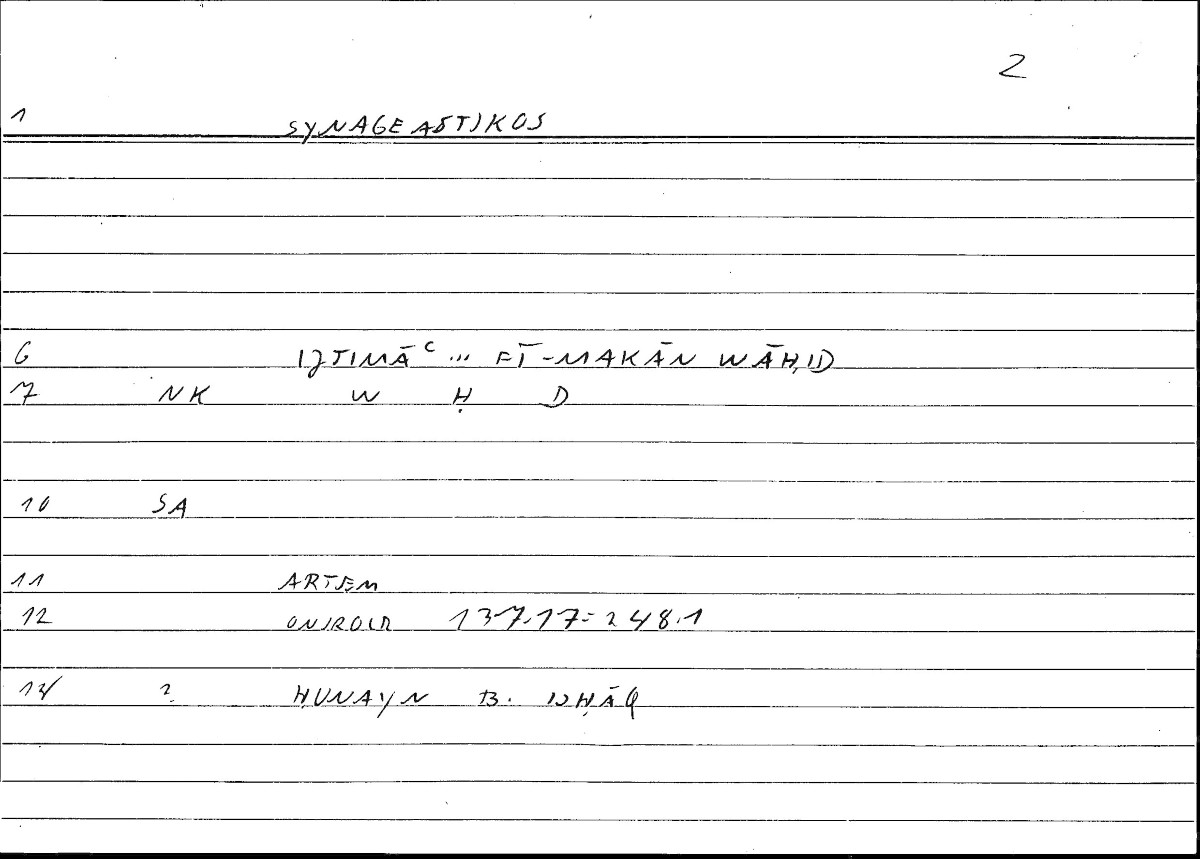 2
1 SYNAGELASTIKOS
6 IJTIMĀʿ ... FĪ-MAKĀN WĀḤID
7 NK W Ḥ D
10 SA
11 ARTEM
12 ONIROCR 137.17 = 248.1
14 2 ḤUNAYN B. ISḤĀQ